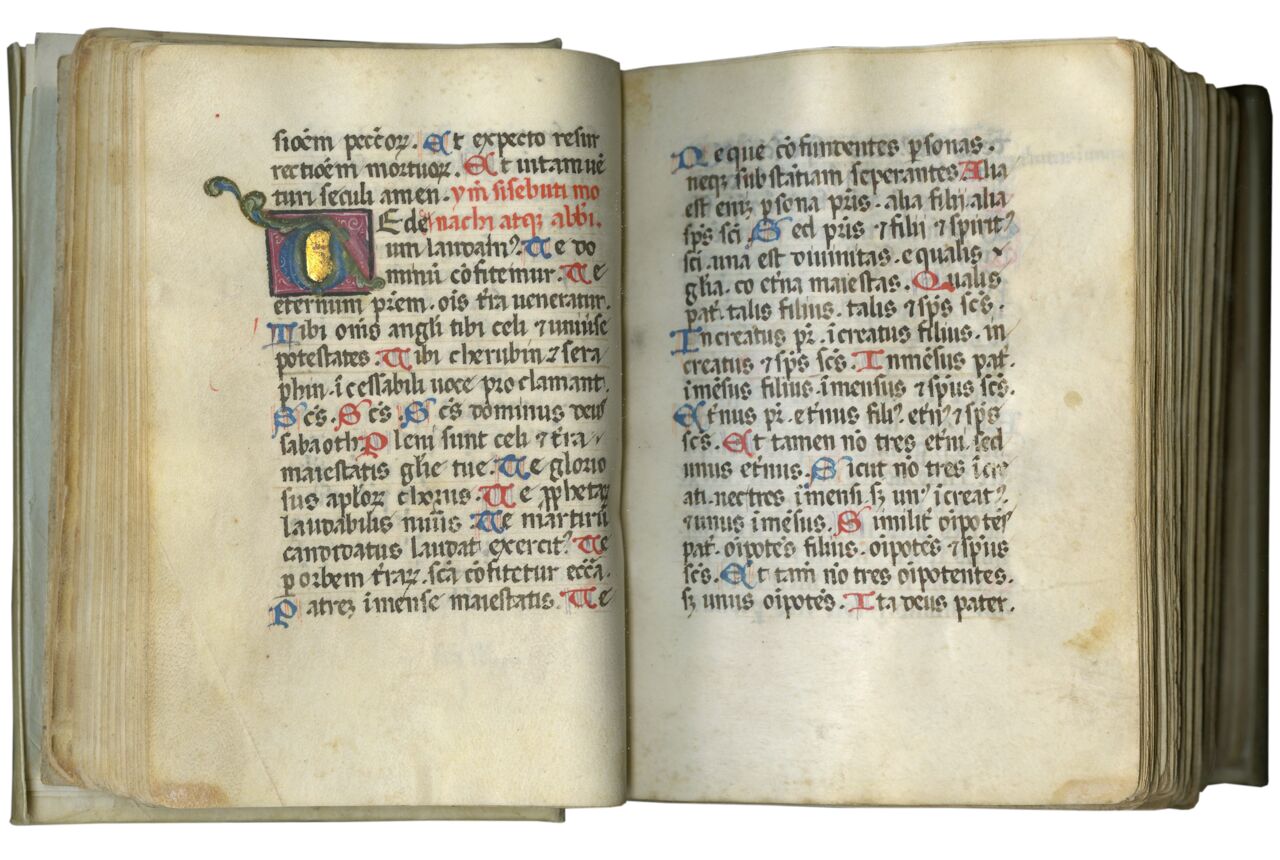 siōem pecc̄oꝝ. Et expecto resur
rectiōem mortuoꝝ. Et uitam uē
turi seculi amen. ym̄ sisebuti mo
Te de nachi atqꝫ abb̄i.
um laudam᷒. Te do
minū cōfitemur. Te
eternum pr̄em. oīs t̄ra ueneratur.
Tibi om̄s angl̄i tibi celi ⁊ uniuse
potestates. Tibi cherubin ⁊ sera
phin. īcessabili uoce proclamant.
Sc̄s. Sc̄s. Sc̄s dominus deus
sabaoth. Pleni sunt celi ⁊ t̄ra
maiestatis gl̄ie tue. Te glorio
sus apl̄oꝝ chorus. Te ꝓphetaꝝ
laudabilis nūius. Te martirū
candidatus laudat exercit᷒. Te
ꝑ orbem t̄raꝝ. sc̄a cōfitetur ecc̄a.
Patreꝫ īmense maiestatis. Te
Neque cōfundentes ꝑsonas.
neqꝫ substātiam seperantes. Alia
est eniꝫ ꝑsona pr̄is. alia filii. alia
sp̄s sc̄i. Sed pr̄is ⁊ filii ⁊ spirit᷒
sc̄i. una est diuinitas. equalis
gl̄ia. co et̄na maiestas. Qualis
pat̄. talis filius. talis ⁊ sp̄s sc̄s.
Increatus pr̄. īcreatus filius. in
creatus ⁊ sp̄s sc̄s. Inmēsus pat̄.
īmēsus filius. īmensus ⁊ sp̄us sc̄s.
Et̄nus pr̄. et̄nus fili᷒. et̄n᷒ ⁊ sp̄s
sc̄s. Et tamen nō tres et̄ni. sed
unus et̄nus. Sicut nō tres īcre
ati. nec tres īmensi. sꝫ un᷒ īcreat᷒.
⁊ unus īmēsus. Similit̄ oīpotēs
pat̄. oīpotēs filius. oīpotēs ⁊ sp̄us
sc̄s. Et tam̄ nō tres oīpotentes.
sꝫ unus oīpotēs. Ita deus pater.